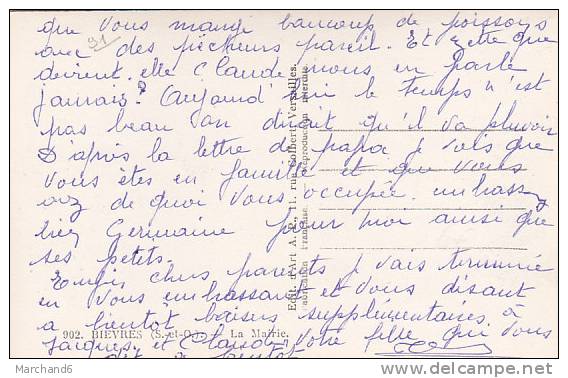 que vous mangé beaucoup de poissons
91
avec des pêcheurs pareil. Et
devient elle Claude nous en parle
jamais? Aujourd'hui le temps n'est
pas beau on dirait qu'il va pleuvoir
D'après la lettre de papa je vois que
vous êtes en famille et que vous
avez de quoi vous occupée. embrassez
bien Germaine pour moi ainsi que
ses petits.
Enfin chers parents je vais terminée
en vous embrassant et vous disant
a bientot baisers supplémentaires a
Jacques et Claude. Votre fille qui vous
dit a bientot
902. BIEVRES (S.-et-O.) - La Mairie.
Edit. d'Art A. P., 11, rue Colbert, Versailles.
Fabrication Française. Reproduction interdite
Marchand6
http://www.delcampe.net